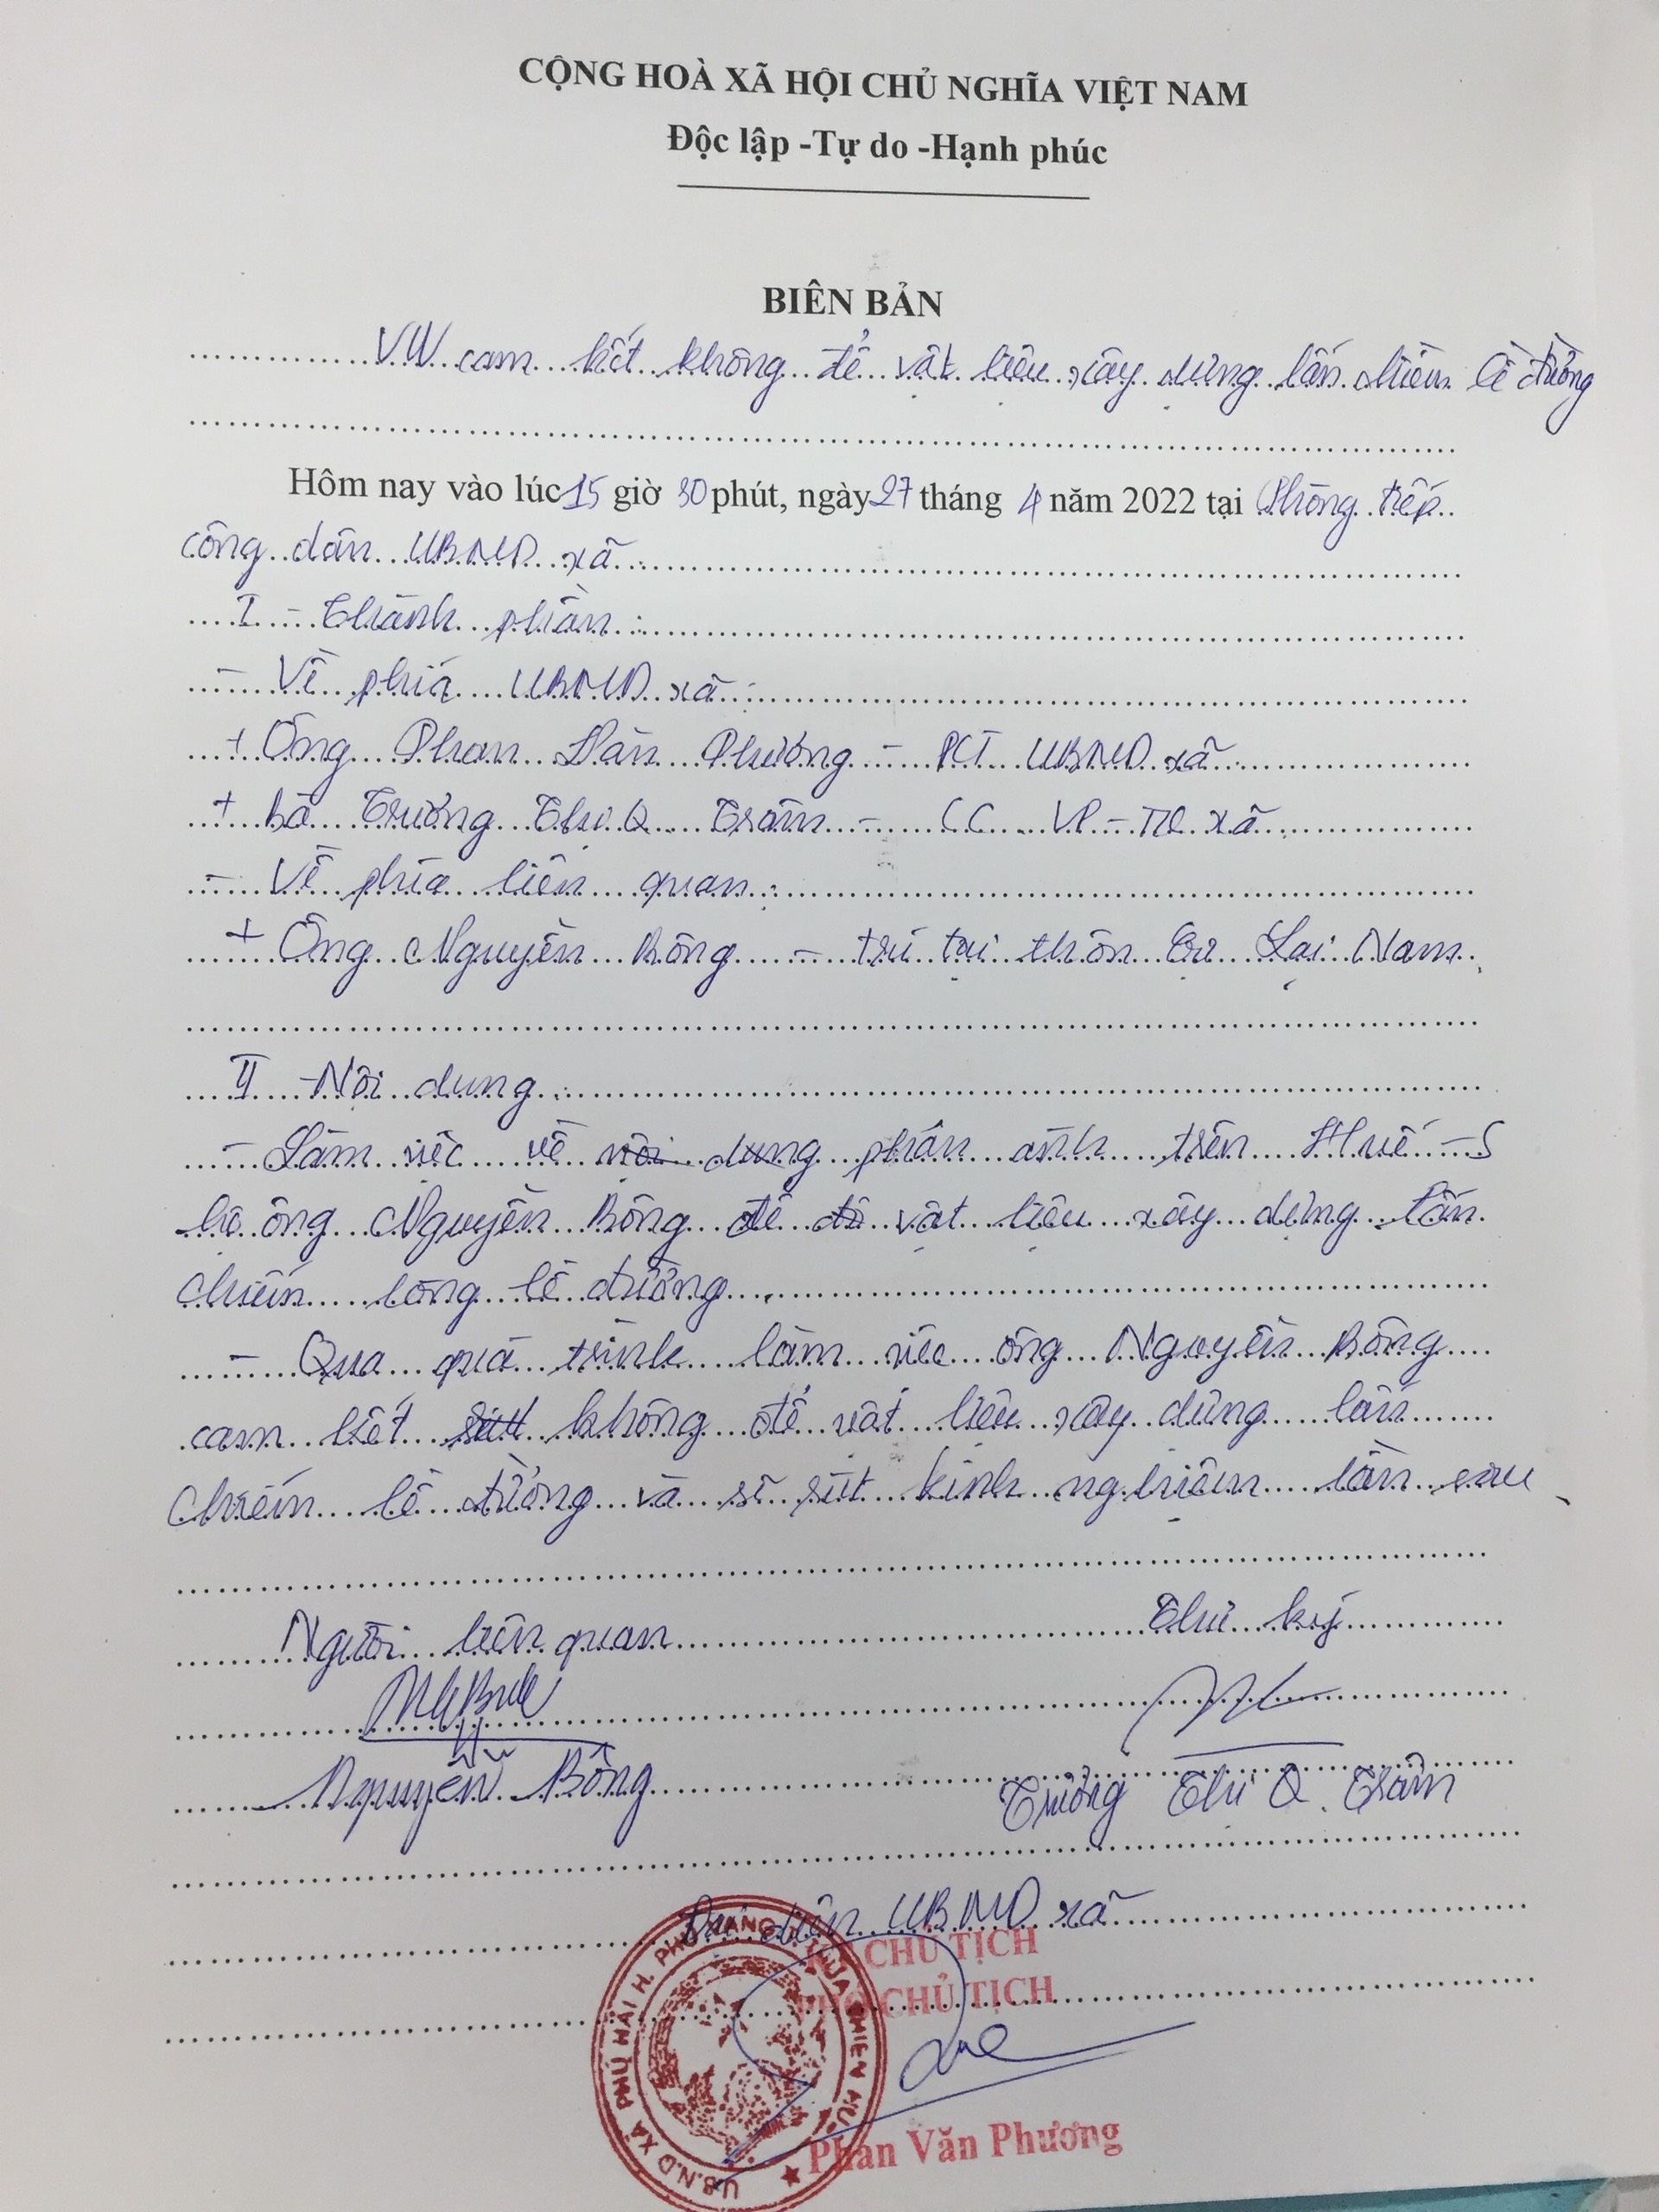 CỘNG HOÀ XÃ HỘI CHỦ NGHĨA VIỆT NAM
Độc lập -Tự do -Hạnh phúc
BIÊN BẢN
V/v cam kết không để vật liệu xây dựng lấn chiếm lề đường
Hôm nay vào lúc 15 giờ 30 phút, ngày 27 tháng 4 năm 2022 tại Phòng tiếp
công dân UBND xã
I - Thành phần:
- Về phía UBND xã:
+ Ông Phan Văn Phương - PCT UBND xã
+ bà Trương Thị Q Trâm - CC VP-TK xã
- Về phía liên quan:
+ Ông Nguyễn Bông - trú tại thôn Cự Lại Nam.
II - Nội dung:
- Làm việc về nội dung phản ánh trên Huế-S
hộ ông Nguyễn Bông để vật liệu xây dựng lấn
chiếm lòng lề đường.
- Qua quá trình làm việc ông Nguyễn Bông
cam kết không để vật liệu xây dựng lấn
chiếm lề đường và sẽ rút kinh nghiệm lần sau
Người liên quan
Thư ký
Nguyễn Bông
Trương Thị Q. Trâm
Đại diện UBND xã
KT. CHỦ TỊCH
PHÓ CHỦ TỊCH
U.B.N.D XÃ PHÚ HẢI H. PHÚ VANG T. THỪA THIÊN HUẾ
Phan Văn Phương